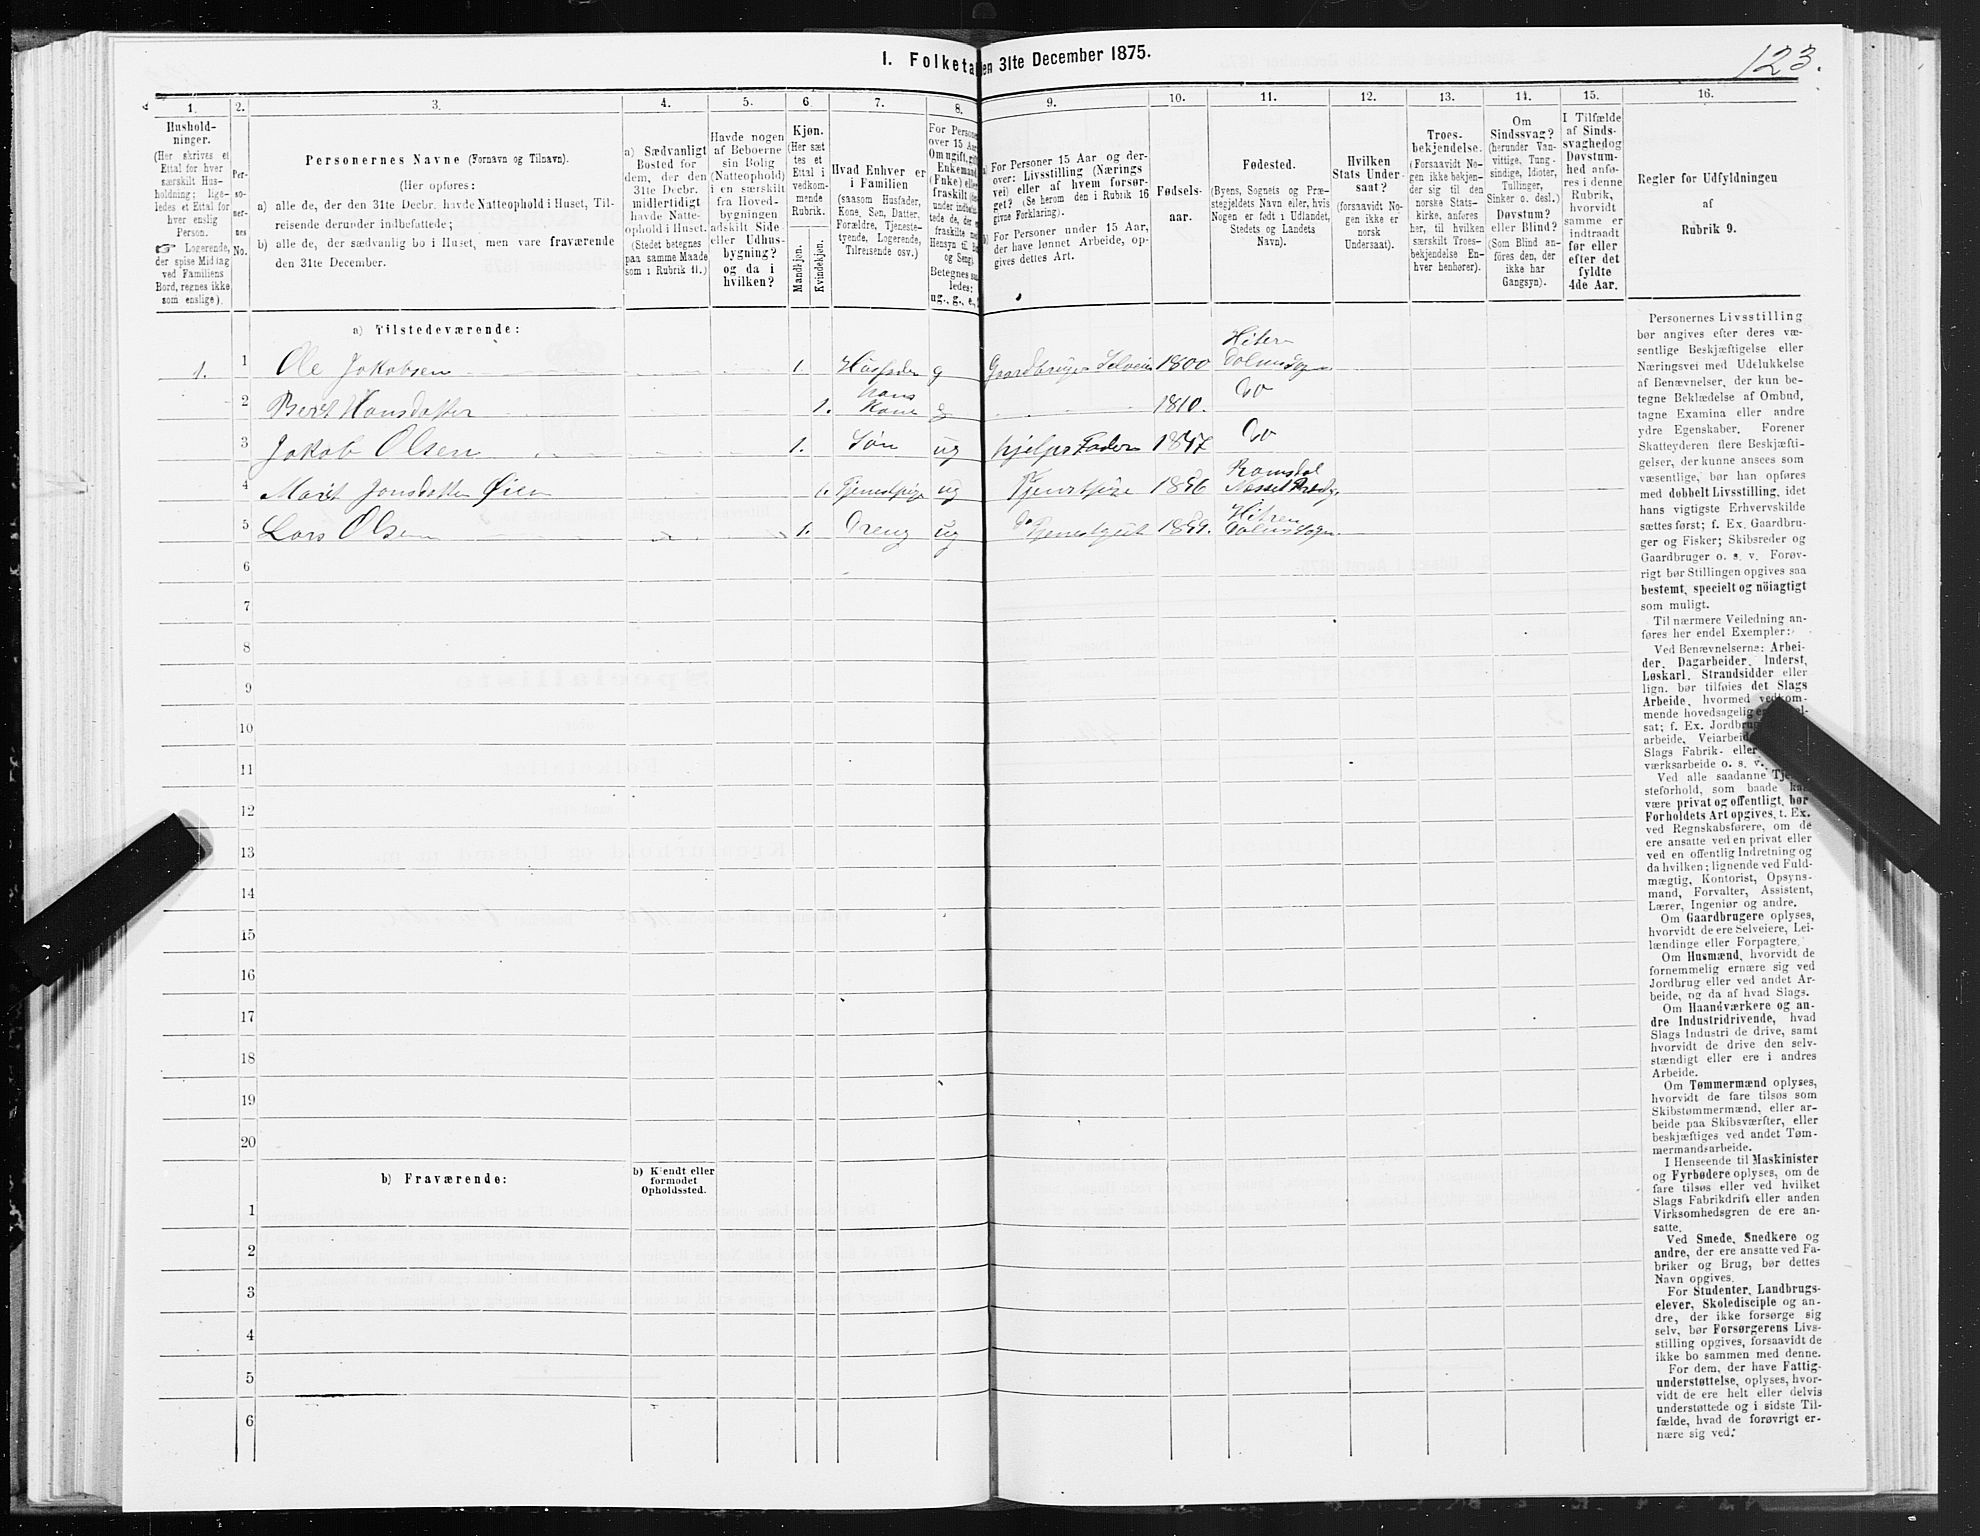 1. Folketa
en 31te December 1875.
123.
1.
2.
3.
4.
5.
6
7.
8.
9.
10.
11.
12.
13.
14.
15.
16.
Hushold-
ninger.
(Her skrives et
Ettal for hver
særskilt Hus-
holdning; lige-
ledes et Ettal for
hver enslig
Person.
☞ Logerende,
der spise Middag
ved Familiens
Bord, regnes ikke
som enslige).
Per-
so-
ner-
nes
No.
Personernes Navne (Fornavn og Tilnavn).
(Her opføres:
a) alle de, der den 31te Decbr. havde Natteophold i Huset, Til-
reisende derunder indbefattede;
b) alle de, der sædvanlig bo i Huset, men vare fraværende
den 31te December.
a) Sædvanligt
Bosted for
dem, der den
31te Decbr.
midlertidigt
havde Natte-
ophold i Huset.
(Stedet betegnes
paa samme Maade
som i Rubrik 11.)
Havde nogen
af Beboerne
sin Bolig
(Natteophold)
i en særskilt
fra Hoved-
bygningen
adskilt Side-
eller Udhus-
bygning?
og da i
hvilken?
Kjøn.
(Her sæt
tes et
Ettal i
vedkom-
mende
Rubrik.
Mandkjøn.
Kvindekjøn.
Hvad Enhver er
i Familien
(saasom Husfader,
Kone, Søn, Datter,
Forældre, Tjeneste-
tyende, Logerende,
Tilreisende osv.)
For Person
over 15 Aar
Om ugift, gift,
Enkemand
(Enke) eller
fraskilt
under indbefat-
tede de, der e
fraskilte me
Hensyn til B
og Seng).
Betegnes saa
ledes:
ug., g., e.,
a) For Personer 15 Aar og der-
over: Livsstilling (Nærings
vei) eller af hvem forsør-
get? (Se herom den i Rubrik 16
givne Forklaring).
b) For Personer under 15 Aar,
der have lønnet Arbeide, op-
gives dettes Art.
Fødsels-
aar.
Fødested.
(Byens, Sognets og Præ-
stegjeldets Navn eller, hvis
Nogen er født i Udlandet,
Stedets og Landets
Navn).
Hvilken
Stats Under-
saat?
(forsaavidt No-
gen ikke er
norsk
Undersaat).
Troes-
bekjendelse.
(Forsaavidt No-
gen ikke bekjen-
der sig til den
norske Stats-
kirke, anføres
her, til hvilken
særskilt Troes-
bekjendelse En-
hver henhører).
Om
Sindssvag?
(herunder Van-
vittige, Tung-
sindige, Idioter,
Tullinger,
Sinker o. desl.)
Døvstum?
eller Blind?
(Som Blind an-
føres den, der
ikke har
Gangsyn).
I Tilfælde
af Sinds-
svaghed og
Døvstum-
hed anfø-
res i denne
Rubrik,
hvorvidt
samme er
indtraadt
før eller
efter det
fyldte
4de Aar.
Regler for Udfyldningen
af
Rubrik 9.
a) Tilstedeværende:
1. 1 Ole Jakobsen 1. Husfader g Gaardbruger Selveier 1800 Hitern Dolmsogn
2 Berit Hansdatter 1. hans Kone g 1810. Do
3 Jakob Olsen 1. Søn ug hjelper Fader 1847 Do
4 Marit Jonsdatter Øien 1. Tjenestpige ug Tjenstpige 1856 Romsdal Nesset Prestg.
5 Lars Olsen 1. Dreng ug do Tjenestgut 1859. Hitren Dolmsogn
6
7
8
9
10
11
12
13
14
15
16
17
18
19
20
b) Fraværende:
b) Kjendt eller
formodet
Opholdssted.
1
2
3
4
5
6
Personernes Livsstilling
bør angives efter deres væ-
sentlige Beskjæftigelse eller
Næringsvei med Udelukkelse
af Benævnelser, der kun be-
tegne Beklædelse af Ombud,
tagne Examina eller andre
ydre Egenskaber. Forener
Skatteyderen flere Beskjæfti-
gelser, der kunne ansees som
væsentlige, bør han opføres
med dobbelt Livsstilling, idet
hans vigtigste Erhvervskilde
sættes først; f. Ex. Gaardbru-
ger og Fisker; Skibsreder og
Gaardbruger o. s. v. Forøv-
rigt bør Stillingen opgives saa
bestemt, specielt og nöiagtigt
som muligt.
Til nærmere Veiledning an-
føres her endel Exempler:
Ved Benævnelserne: Arbei-
der, Dagarbeider, Inderst,
Løskarl, Strandsidder eller
lign. bør tilføies det Slags
Arbeide, hvormed vedkom-
mende hovedsagelig er sel-
sat; f. Ex. Jordbru
arbeide, Veiarbeid
Slags Fabrik- eller
værksarbeide o. s. v.
Ved alle saadanne Tje
steforhold, som baade kan
være privat og offentligt, bør
Forholdets Art opgives, t. Ex.
ved Regnskabsførere, om de
ere ansatte ved en privat eller
ved en offentlig Indretning og
da hvilken; lignende ved Fuld-
mægtig, Kontorist, Opsyns-
mand, Forvalter, Assistent,
Lærer, Ingeniør og andre.
Om Gaardbrugere oplyses,
hvorvidt de ere Selveiere, Lei-
lændinge eller Forpagtere.
Om Husmænd, hvorvidt de
fornemmelig ernære sig ved
Jordbrug eller ved andet Ar-
beide, og da af hvad Slags.
Om Haandværkere og an-
dre Industridrivende, hvad
Slags Industri de drive, samt
hvorvidt de drive den selv-
stændigt eller ere i andres
Arbeide.
Om Tømmermænd oplyses,
hvorvidt de fare tilsøs som
Skibstømmermænd, eller ar-
beide paa Skibsværfter, eller
beskjæftiges ved andet Tøm-
mermandsarbeide.
I Henseende til Maskinister
og Fyrbødere oplyses, om de
fare tilsøs eller ved hvilket
Slags Fabrikdrift eller anden
Virksomhedsgren de ere an-
satte.
Ved Smede, Snedkere og
andre, der ere ansatte ved Fa-
briker og Brug, bør dettes
Navn opgives.
For Studenter, Landbrugs-
elever, Skoledisciple og an-
dre, der ikke forsørge sig
selv, bør Forsørgerens Livs-
stilling opgives, forsaavidt de
ikke bo sammen med denne.
For dem, der have Fattig-
understøttelse, oplyses, hvor-
vidt de ere helt eller delvis
understøttede og i sidste Til-
fælde, hvad de forøvrigt er-
nære sig ved.